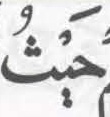 حَيْثُ